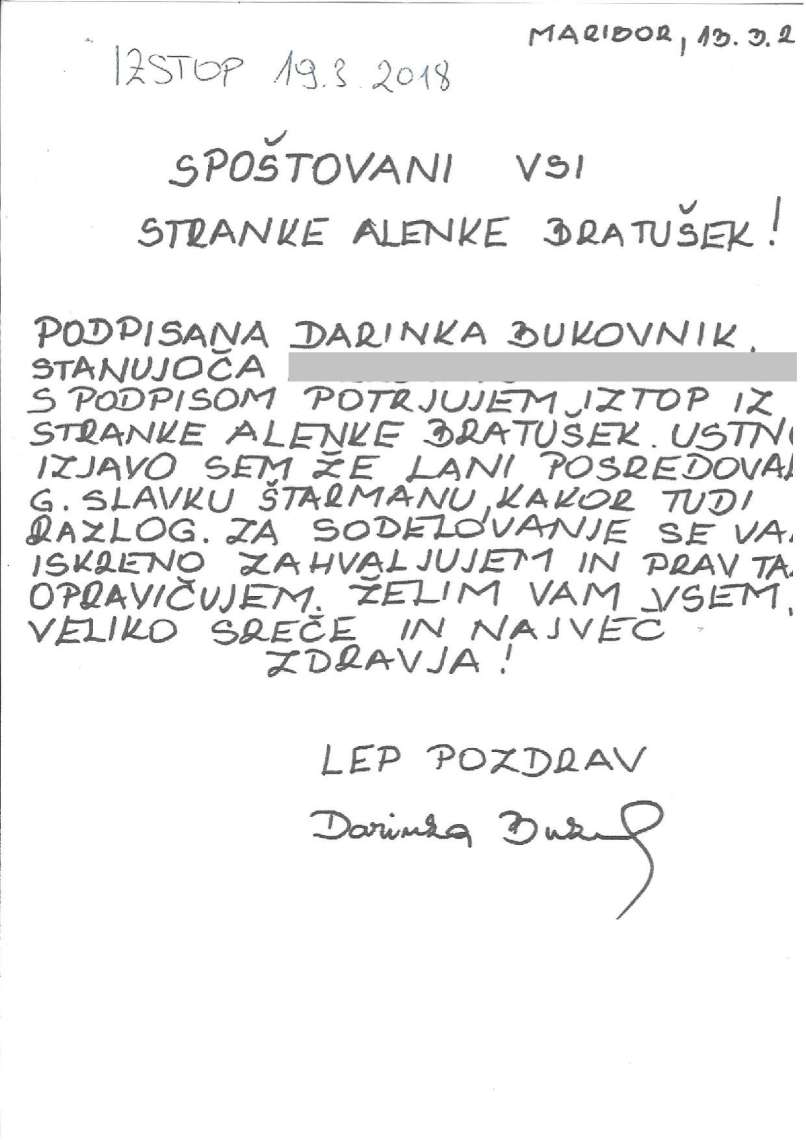 MARIBOR, 13.3.2
IZSTOP 19.3.2018
SPOŠTOVANI VSI
STRANKE ALENKE BRATUŠEK!
PODPISANA DARINKA BUKOVNIK,
STANUJOČA
S PODPISOM POTRJUJEM, IZTOP IZ
STRANKE ALENKE BRATUŠEK. USTNO
IZJAVO SEM ŽE LANI POSREDOVAL
G. SLAVKU ŠTARMANU, KAKOR TUDI
RAZLOG. ZA SODELOVANJE SE VA
ISKRENO ZAHVALJUJEM IN PRAV TA
OPRAVIČUJEM. ŽELIM VAM VSEM,
VELIKO SREČE IN NAJVEČ
ZDRAVJA!
LEP POZDRAV
Darinka Buk